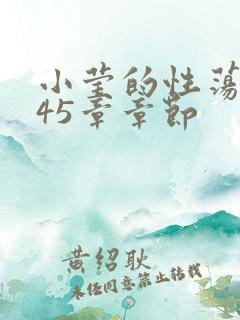 小莹的性荡
45章章节
黄绍耿
未经同意禁止转载